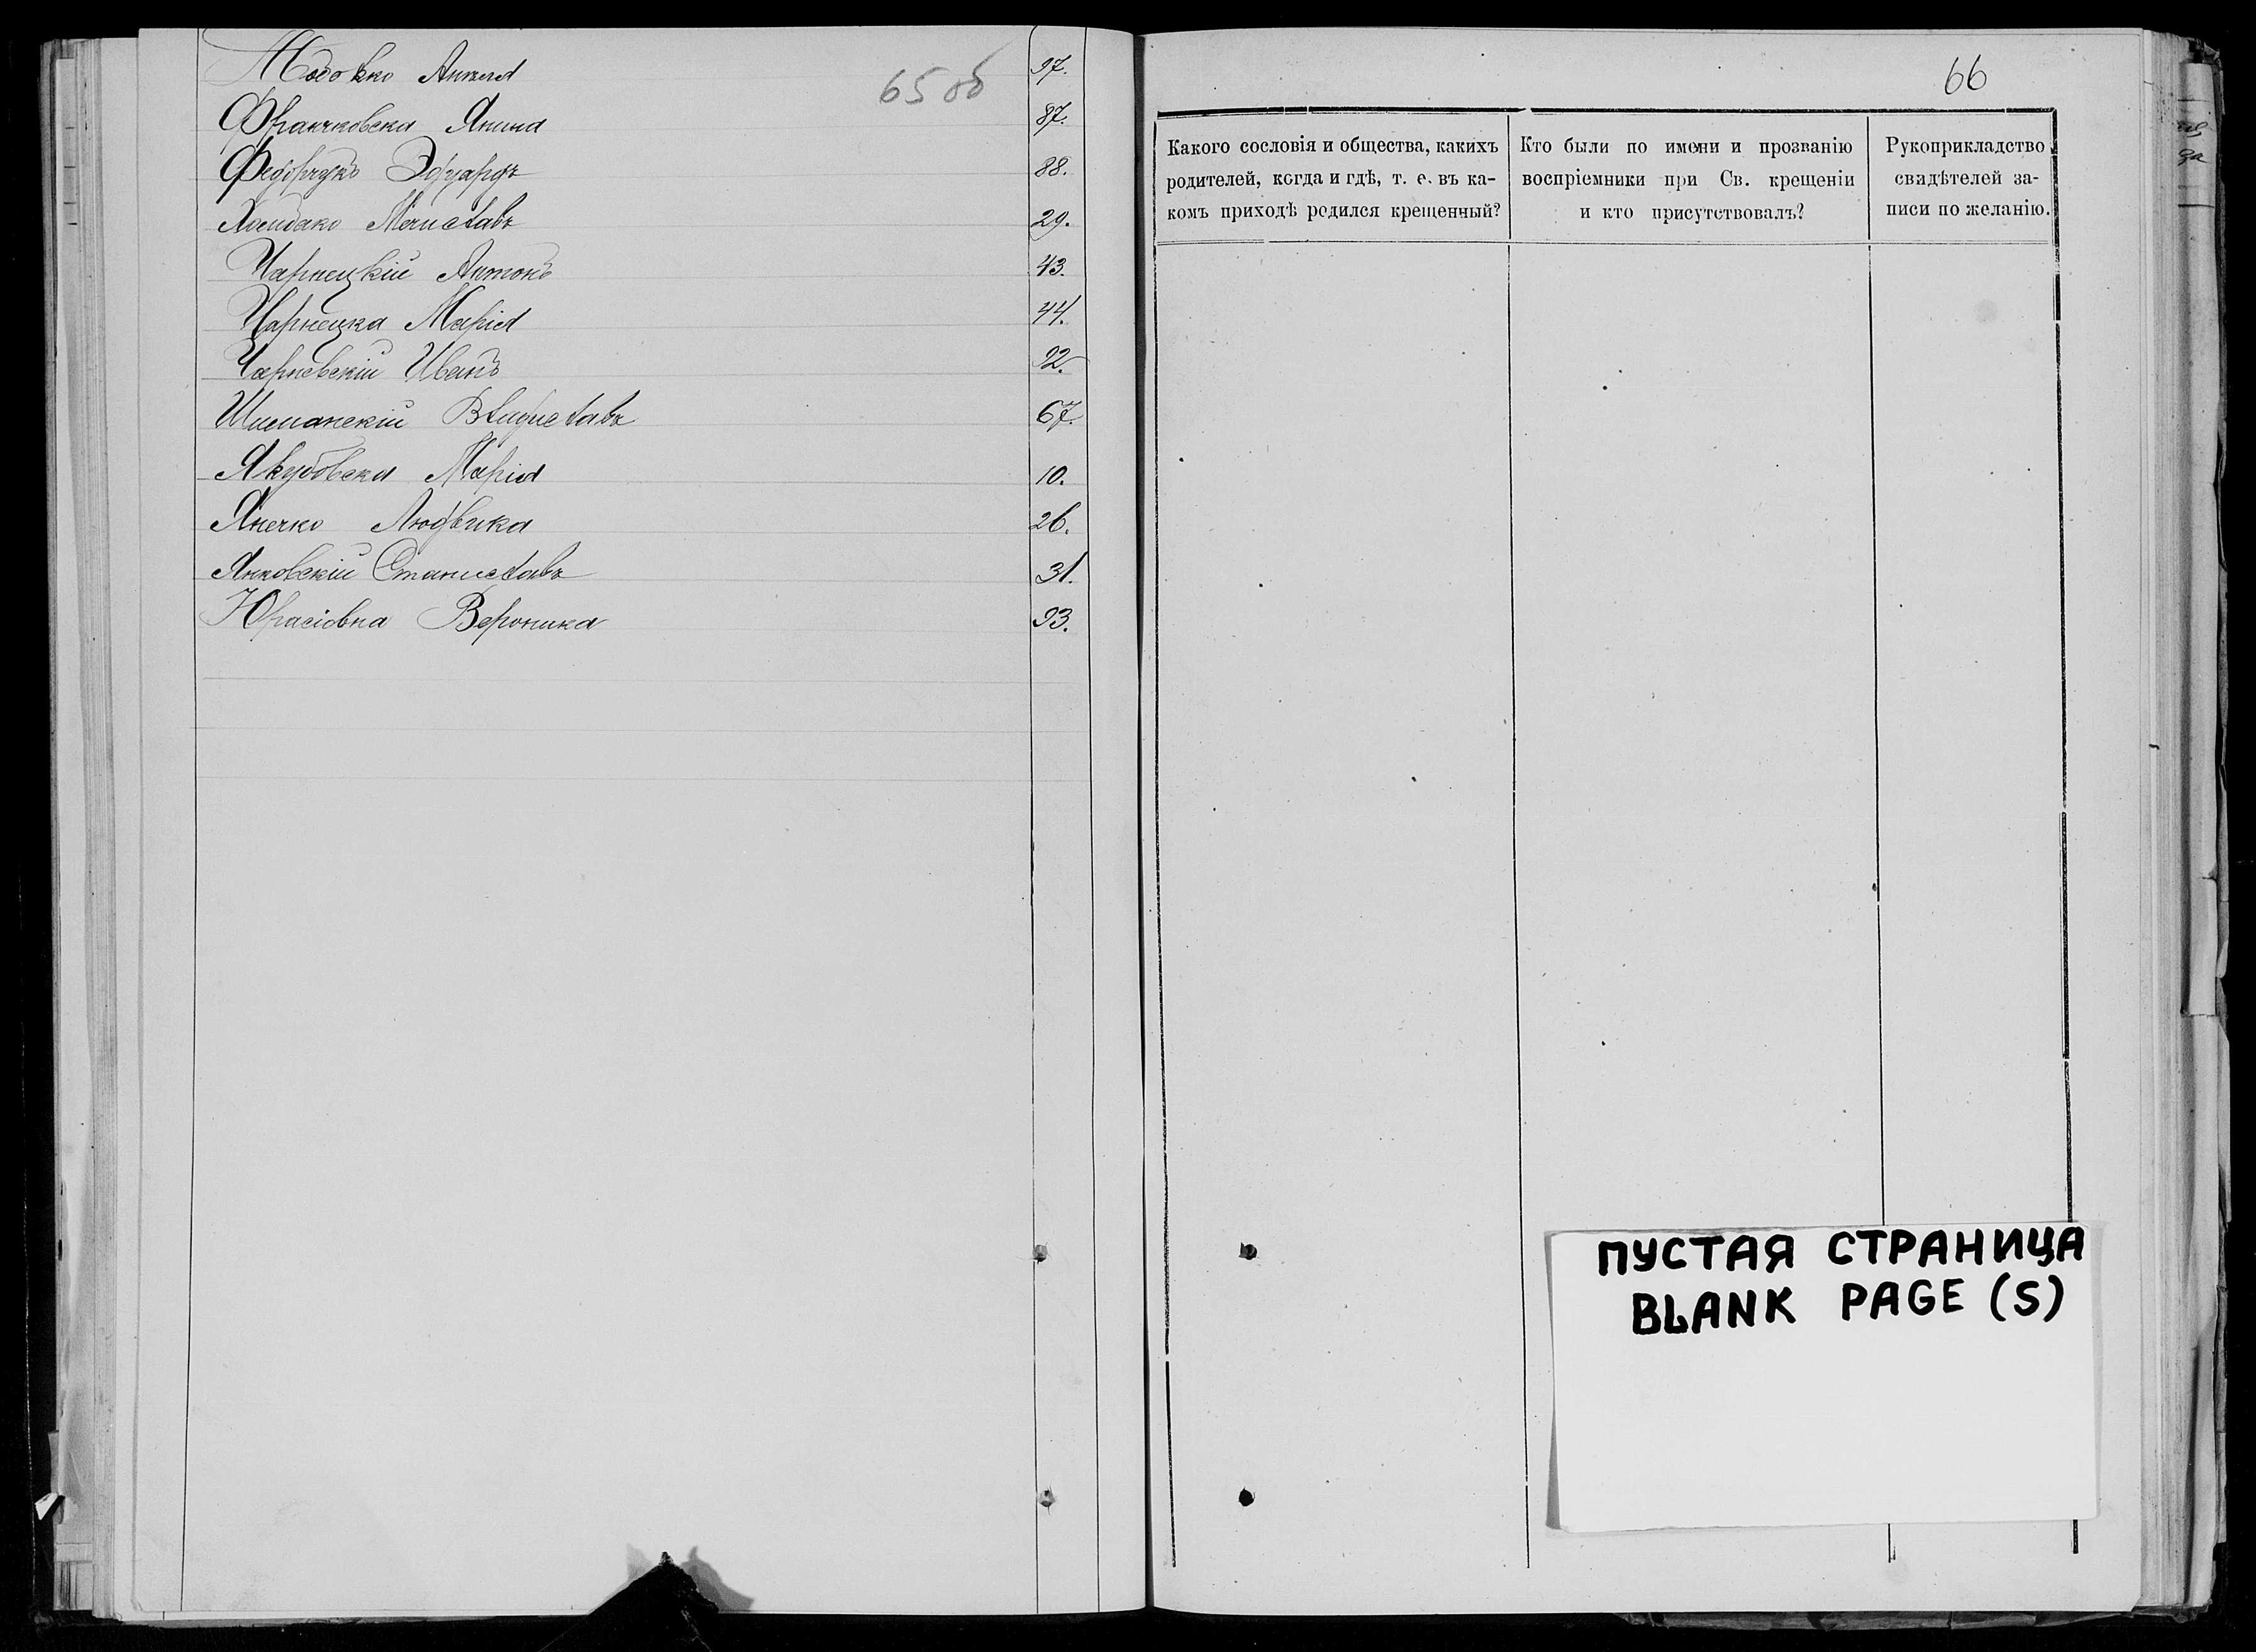 65 об
Ангеля 97.
Франчковска Янина 87.
Федорчукъ Эдуардъ 88.
Мечиславъ 29.
Чарнецкій Антонъ 43.
Чарнецка Марія 44.
Чарневскій Иванъ 92.
Шиманскій Владиславъ 67.
Якубовска Марія 10.
Янечко Людвика 26.
Янковскій Станиславъ 31.
Юрасіовна Вероника 93.
66
Какого сословія и общества, какихъ
родителей, когда и гдѣ, т. е. въ ка-
комъ приходѣ родился крещенный?
Кто были по имени и прозванію
воспріемники при Св. крещеніи
и кто присутствовалъ?
Рукоприкладство
свидѣтелей за-
писи по желанію.
ПУСТАЯ СТРАНИЦА
BLANK PAGE (S)